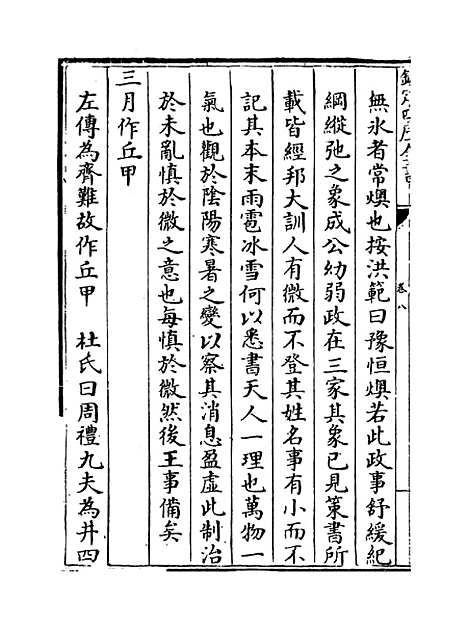 無冰者常燠也按洪範曰豫恒燠若此政事舒緩紀
綱縱弛之象成公幼弱政在三家其象已見策書所
載皆經邦大訓人有微而不登其姓名事有小而不
記其本末雨雹冰雪何以悉書天人一理也萬物一
氣也觀於陰陽寒暑之變以察其消息盈虛此制治
於未亂慎於微之意也每慎於微然後王事備矣
三月作丘甲
左傳為齊難故作丘甲　杜氏曰周禮九夫為井四
卷八